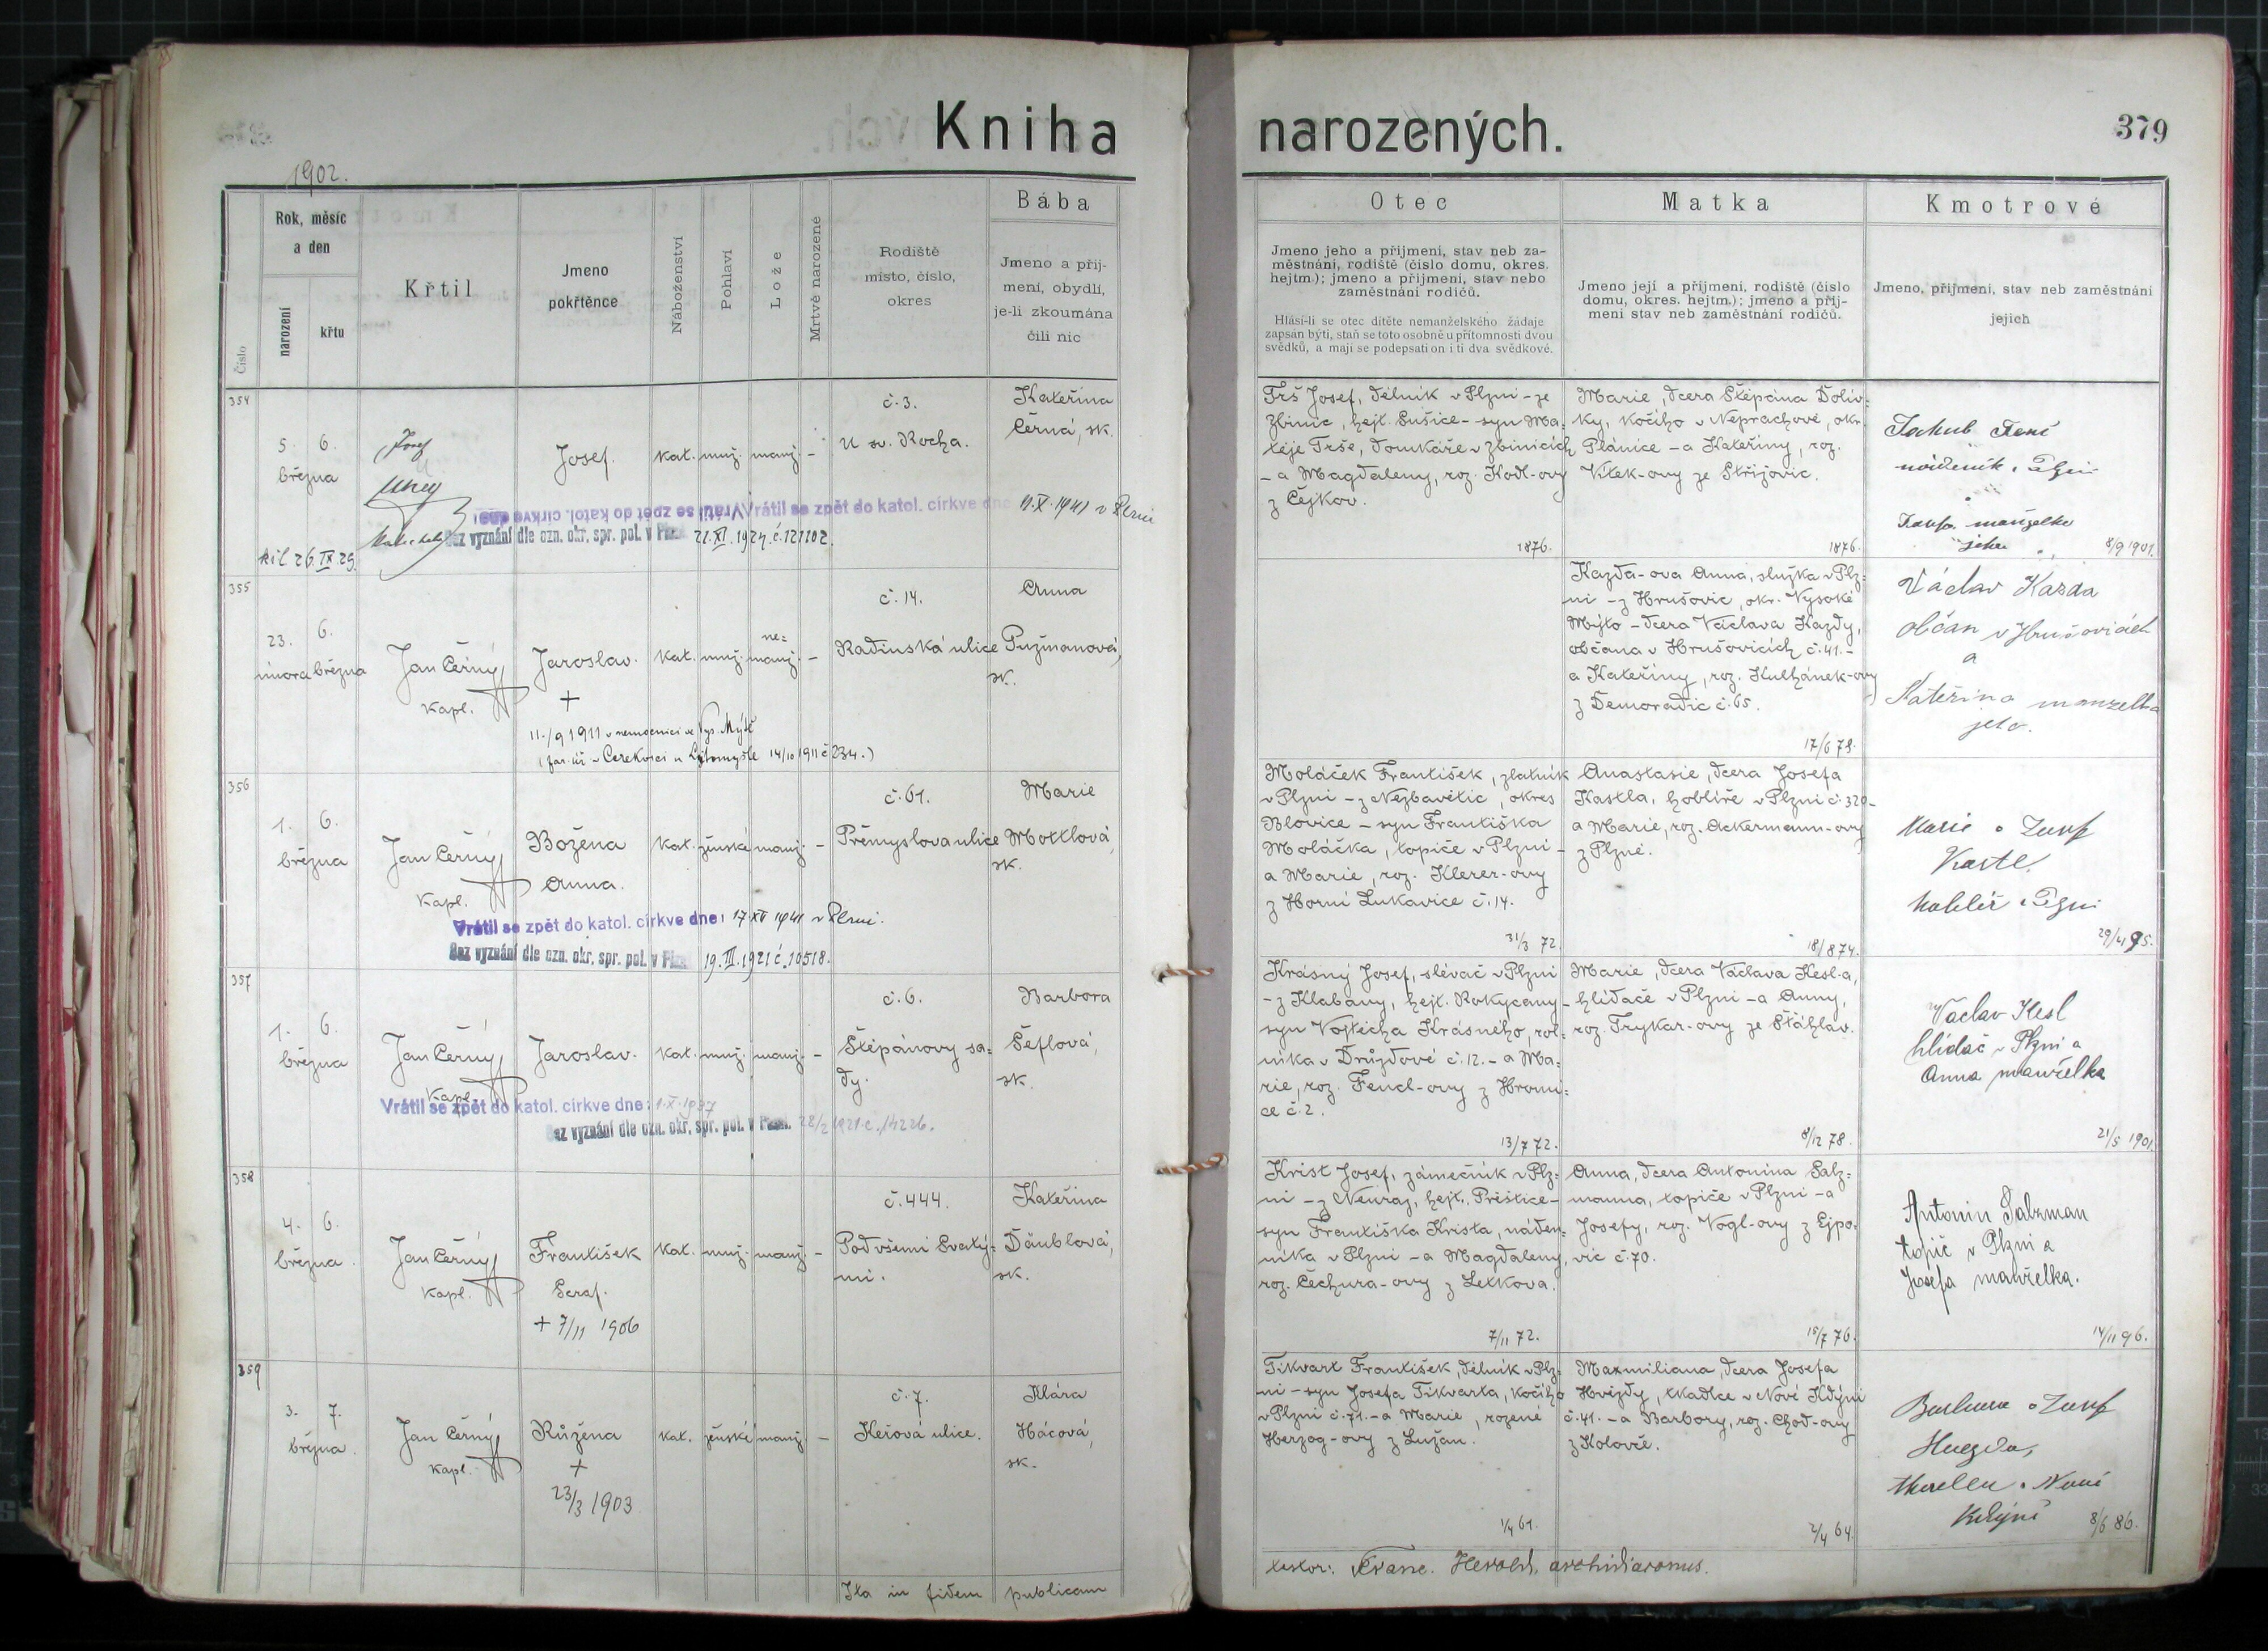 Kniha narozených.
379
1902.
Číslo
Rok, měsíc
a den
narození
křtu
Křtil
Jmeno
pokřtěnce
Náboženství
Pohlaví
Lože
Mrtvě narozené
Rodiště
místo, číslo,
okres
Bába
Jmeno a příj-
mení, obydlí,
je-li zkoumána
čili nic
Otec
Jmeno jeho a příjmení, stav neb za-
městnání, rodiště (číslo domu, okres.
hejtm.); jmeno a příjmení, stav nebo
zaměstnání rodičů.
Hlásí-li se otec dítěte nemanželského žádaje
zapsán býti, staň se toto osobně u přítomnosti dvou
svědků, a mají se podepsati on i ti dva svědkové.
Matka
Jmeno její a příjmení, rodiště (číslo
domu, okres. hejtm.); jmeno a příj-
mení stav neb zaměstnání rodičů.
Kmotrové
Jmeno, příjmení, stav neb zaměstnání
jejich
354
5. 6.
března
Josef
Josef.
kat. muž. manž. –
č. 3.
U sv. Rocha.
Kateřina
Černá, sk.
Vrátil se zpět do katol. církve dne 11.X.1941 v Plzni
Bez vyznání dle ozn. okr. spr. pol. v Plzni 21.XI.1924.č.121102.
26.IX.29.
Trš Josef, dělník v Plzni – ze
Zbinic, hejt. Sušice – syn Ma-
těje Trše, domkáře v Zbinicích
– a Magdaleny, roz. Kodl-ovy
z Čejkov.
1876.
Marie, dcera Štěpána Doliv-
ky, kočího v Neprachově, okr.
Plánice – a Kateřiny, roz.
Vítek-ovy ze Střížovic.
1876.
Jakub
manželka
jeho
8/9 1901.
355
23. 6.
února března
Jan Černý
kapl.
Jaroslav.
+
11./9 1911 v nemocnici ve Vys. Mýtě
(far. úř. v Cerekvici u Litomyšle 14/10 1911 č 234.)
kat. muž. ne-
manž. –
č. 14.
Radinská ulice
Anna
Pužmanová,
sk.
Kazda-ova Anna, služka v Plz-
ni – z Hrušovic, okr. Vysoké
Mýto – dcera Václava Kazdy,
občana v Hrušovicích č. 41. –
a Kateřiny, roz. Kulhánek-ovy
z Demoradic č. 65.
17/6 78.
Václav Kazda
občan v Hrušovicích
a
Kateřina manzelka
jeho.
356
1. 6.
března
Jan Černý
kapl.
Božena
Anna.
kat. ženské manž. –
č. 61.
Přemyslova ulice
Marie
Mottlová,
sk.
Vrátil se zpět do katol. církve dne: 17.XII 1941 v Plzni.
Bez vyznání dle ozn. okr. spr. pol. v Plzni 19.III.1921 č. 10518.
Moláček František, zlatník
v Plzni – z Nezbavětic, okres
Blovice – syn Františka
Moláčka, topiče v Plzni –
a Marie, roz. Klerer-ovy
z Horní Lukavice č. 14.
31/3 72.
Anastasie, dcera Josefa
Kastla, hoblíře v Plzni č. 320 –
a Marie, roz. Ackermann-ovy
z Plzně.
18/8 74.
Marie a Josef
Kastl
29/4 95.
357
1. 6.
března
Jan Černý
kapl.
Jaroslav.
kat. muž. manž. –
č. 6.
Štěpánovy sa-
dy.
Barbora
Šeflová,
sk.
Vrátil se zpět do katol. církve dne: 1.X.1937
Bez vyznání dle ozn. okr. spr. pol. v Plzni. 28/2 1921 č. 14226.
Krásný Josef, slévač v Plzni
– z Klabavy, hejt. Rokycany –
syn Vojtěcha Krásného, rol-
níka v Druzdově č. 12. – a Ma-
rie, roz. Fencl-ovy z Hromi-
ce č. 2.
13/7 72.
Marie, dcera Václava Kesl-a,
hlídače v Plzni – a Anny,
roz. Trykar-ovy ze Šťáhlav.
8/12 78.
Václav Kesl
hlídač v Plzni a
Anna manželka
21/5 1901.
358
4. 6.
března.
Jan Černý
kapl.
František
Seraf.
+ 7/11 1906
kat. muž. manž. –
č. 444.
Pode všemi Svatý-
mi.
Kateřina
Däublová,
sk.
Krist Josef, zámečník v Plz-
ni – z Neuraz, hejt. Přeštice –
syn Františka Krista, náden-
níka v Plzni – a Magdaleny,
roz. Čechura-ovy z Letkova.
7/11 72.
Anna, dcera Antonína Salz-
manna, topiče v Plzni – a
Josefy, roz. Vogl-ovy z Ejpo-
vic č. 70.
15/7 76.
Antonín Salzman
topič v Plzni a
Josefa manželka.
14/11 96.
359
3. 7.
března.
Jan Černý
kapl.
Růžena
+
23/3 1903
kat. ženské manž. –
č. 7.
Keřová ulice.
Klára
Hácová,
sk.
Tikvart František, dělník v Plz-
ni – syn Josefa Tikvarta, kočího
v Plzni č. 71. – a Marie, rozené
Herzog-ovy z Lužan.
1/4 61.
Maxmiliana, dcera Josefa
Hvězdy, tkadlce v Nové Kdýni
č. 41. – a Barbory, roz. Chod-ovy
z Koloveč.
2/4 64.
Barbora a Josef
Hvězda,
Kdýni
8/6 86.
Ita in fidem publicam
testor: Franc. Herold, archidiaconus.